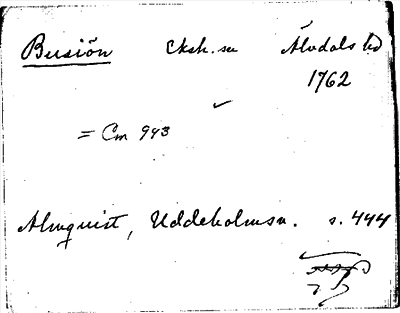 Busiön Eksh.sn Älvdals hd
1762
= Cm 943
Almquist, Uddeholmsv. s. 444